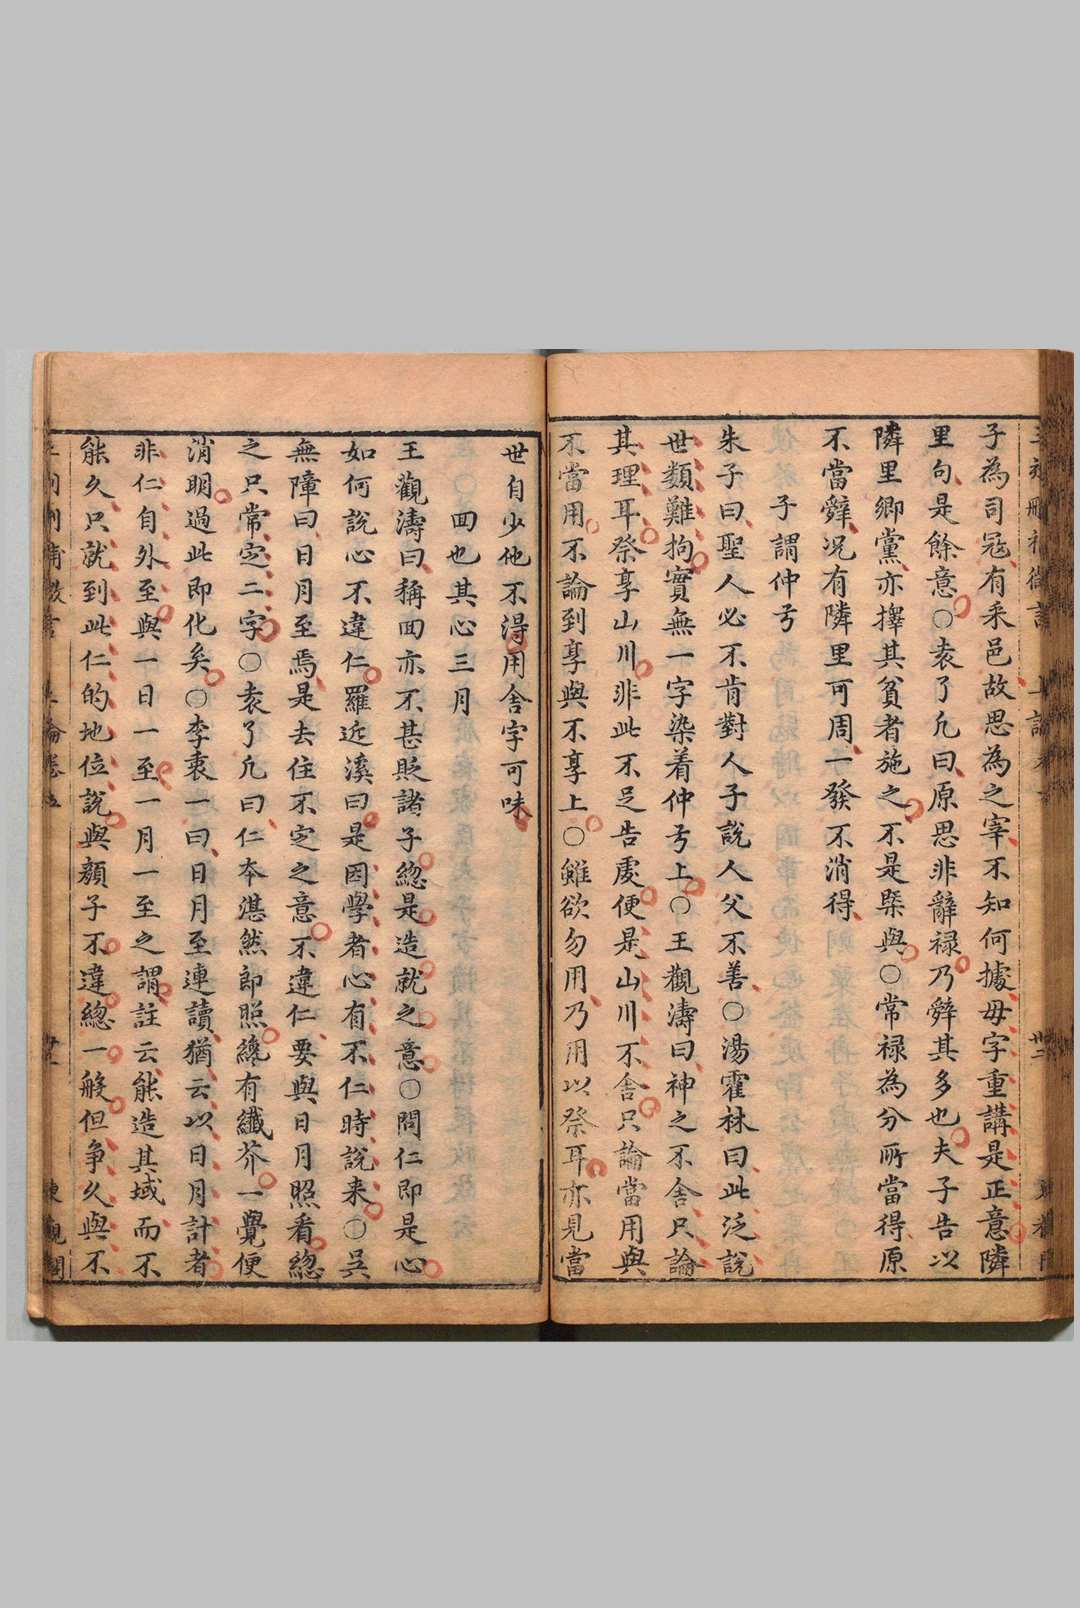 子為司寇有采邑故思為之宰不知何據毋字重講是正意隣
里句是餘意○袁了凡曰原思非辭禄乃辤其多也夫子告以
隣里鄉黨亦擇其貧者施之不是槩與○常禄為分所當得原
不當辤况有隣里可周一發不消得
子謂仲弓
朱子曰聖人必不肯對人子說人父不善○湯霍林曰此泛說
世類難拘實無一字染着仲弓上○王觀濤曰神之不舍只論
其理耳祭享山川非此不足告虔便是山川不舍只論當用與
不當用不論到享與不享上○雖欲勿用乃用以祭耳亦見當
世自少他不得用舍字可味
囬也其心三月
王觀濤曰稱囬亦不甚貶諸子緫是造就之意○問仁即是心
如何說心不違仁羅近溪曰是因學者心有不仁時說来○吳
無障曰日月至焉是去住不定之意不違仁要與日月照看緫
之只常定二字○袁了凡曰仁本湛然即照纔有纖芥一覺便
消明過此即化矣○李衷一曰日月至連讀猶云以日月計者
非仁自外至與一日一至一月一至之謂註云能造其域而不
能久只就到此仁的地位說與顏子不違緫一般但争久與不